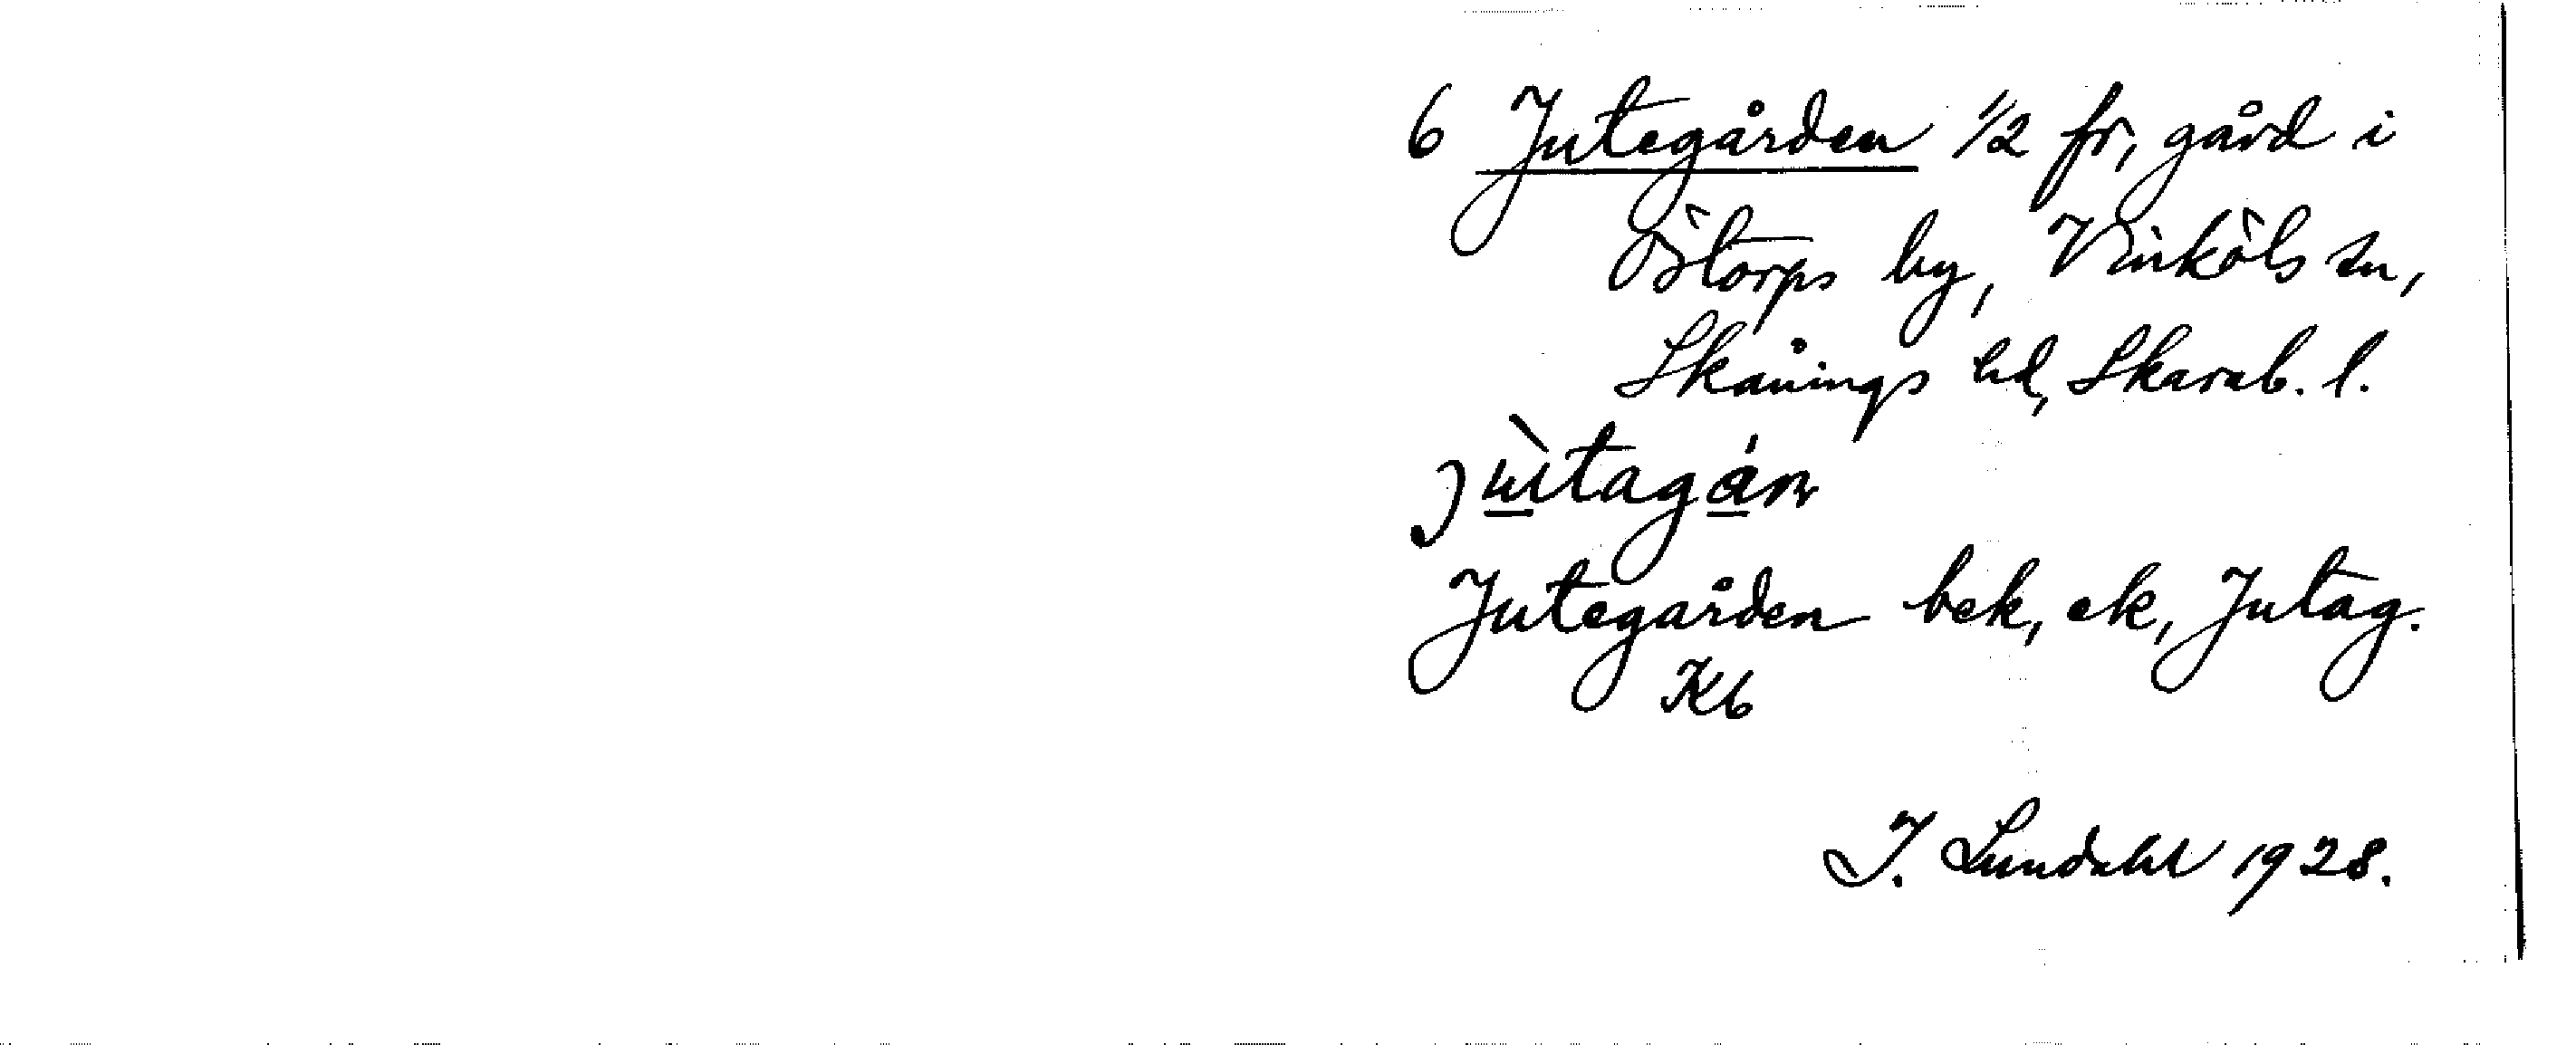 6 Jutegården 1/2 fr, gård i
Östorps by, Vinköls sn,
Skånings hd, Skarab. l.
jùtagán
Jutegården bek, ek, Jutag.
Kb
I. Lundahl 1928.